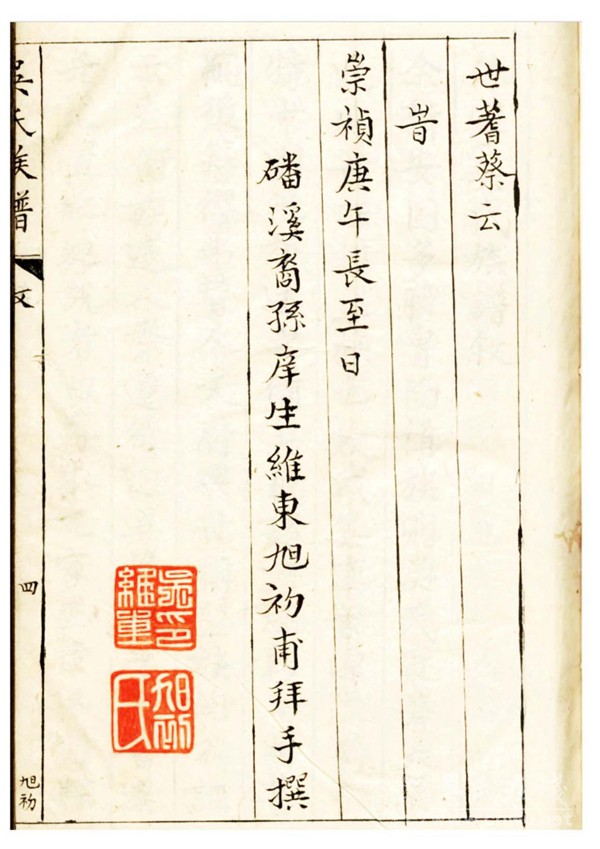 世蓍蔡云
旹
崇禎庚午長至日
磻溪裔孫庠生維東旭初甫拜手撰
吳印維東
旭初氏
吳氏族譜
文
四
旭初